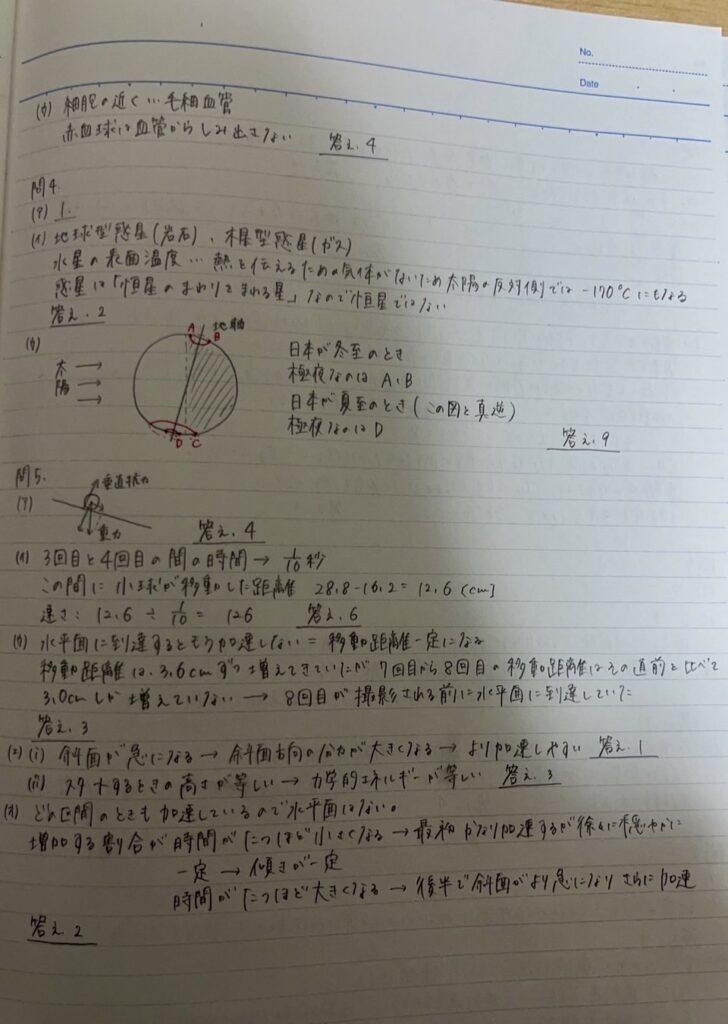 No.
Date
(ウ) 細胞の近く…毛細血管
赤血球は血管からしみ出さない 答え.4
問4.
(ア) 1.
(イ) 地球型惑星(岩石)、木星型惑星(ガス)
水星の表面温度…熱を伝えるための気体がないため太陽の反対側では-170℃にもなる
惑星は「恒星のまわりをまわる星」なので恒星ではない
答え.2
(ウ)
太陽
A 地軸
B
D C
日本が冬至のとき
極夜なのは A、B
日本が夏至のとき(この図と真逆)
極夜なのは D
答え.9
問5.
(ア) 垂直抗力
重力 答え.4
(イ) 3回目と4回目の間の時間→1/10秒
この間に小球が移動した距離 28.8-16.2=12.6(cm)
速さ:12.6÷1/10=126 答え.6
(ウ) 水平面に到達するともう加速しない=移動距離一定になる
移動距離は、3.6cmずつ増えてきていたが7回目から8回目の移動距離はその直前と比べて
3.0cmしか増えていない→8回目が撮影される前に水平面に到達していた
答え.3
(エ)(i) 斜面が急になる→斜面方向の分力が大きくなる→より加速しやすい 答え.1
(ii) スタートするときの高さが等しい→力学的エネルギーが等しい 答え.3
(オ) どの区間のときも加速しているので水平面はない。
増加する割合が時間がたつほど小さくなる→最初かなり加速するが徐々に穏やかに
一定→傾きが一定
時間がたつほど大きくなる→後半で斜面がより急になりさらに加速
答え.2